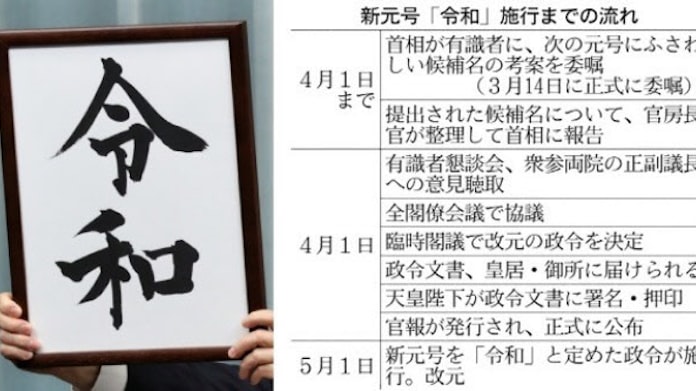 令
和
新元号「令和」施行までの流れ
4月1日
まで
首相が有識者に、次の元号にふさわ
しい候補名の考案を委嘱
(3月14日に正式に委嘱)
提出された候補名について、官房長
官が整理して首相に報告
4月1日
有識者懇談会、衆参両院の正副議長
への意見聴取
全閣僚会議で協議
臨時閣議で改元の政令を決定
政令文書、皇居・御所に届けられる
天皇陛下が政令文書に署名・押印
官報が発行され、正式に公布
5月1日
新元号を「令和」と定めた政令が施
行。改元